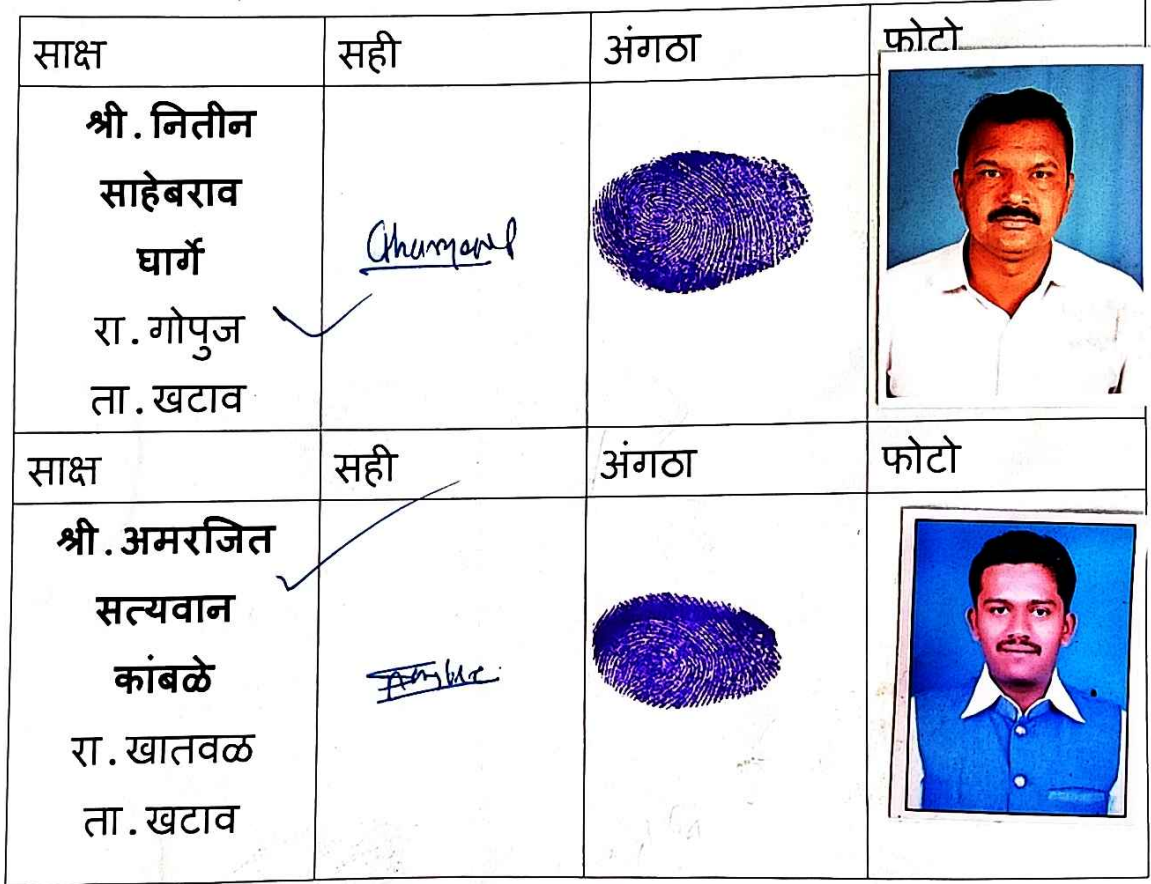 साक्ष सही अंगठा फोटो
श्री.नितीन
साहेबराव
घार्गे
रा.गोपुज
ता.खटाव
साक्ष सही अंगठा फोटो
श्री.अमरजित
सत्यवान
कांबळे
रा.खातवळ
ता.खटाव